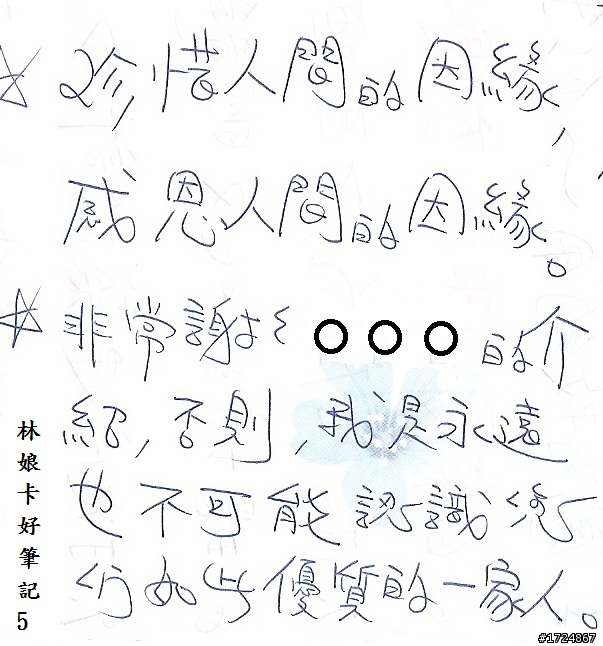 ☆珍惜人間的因緣，
感恩人間的因緣。
☆非常謝謝○○○的介
紹，否則，我是永遠
也不可能認識您
們如此優質的一家人。
林娘卡好筆記5
#1724867